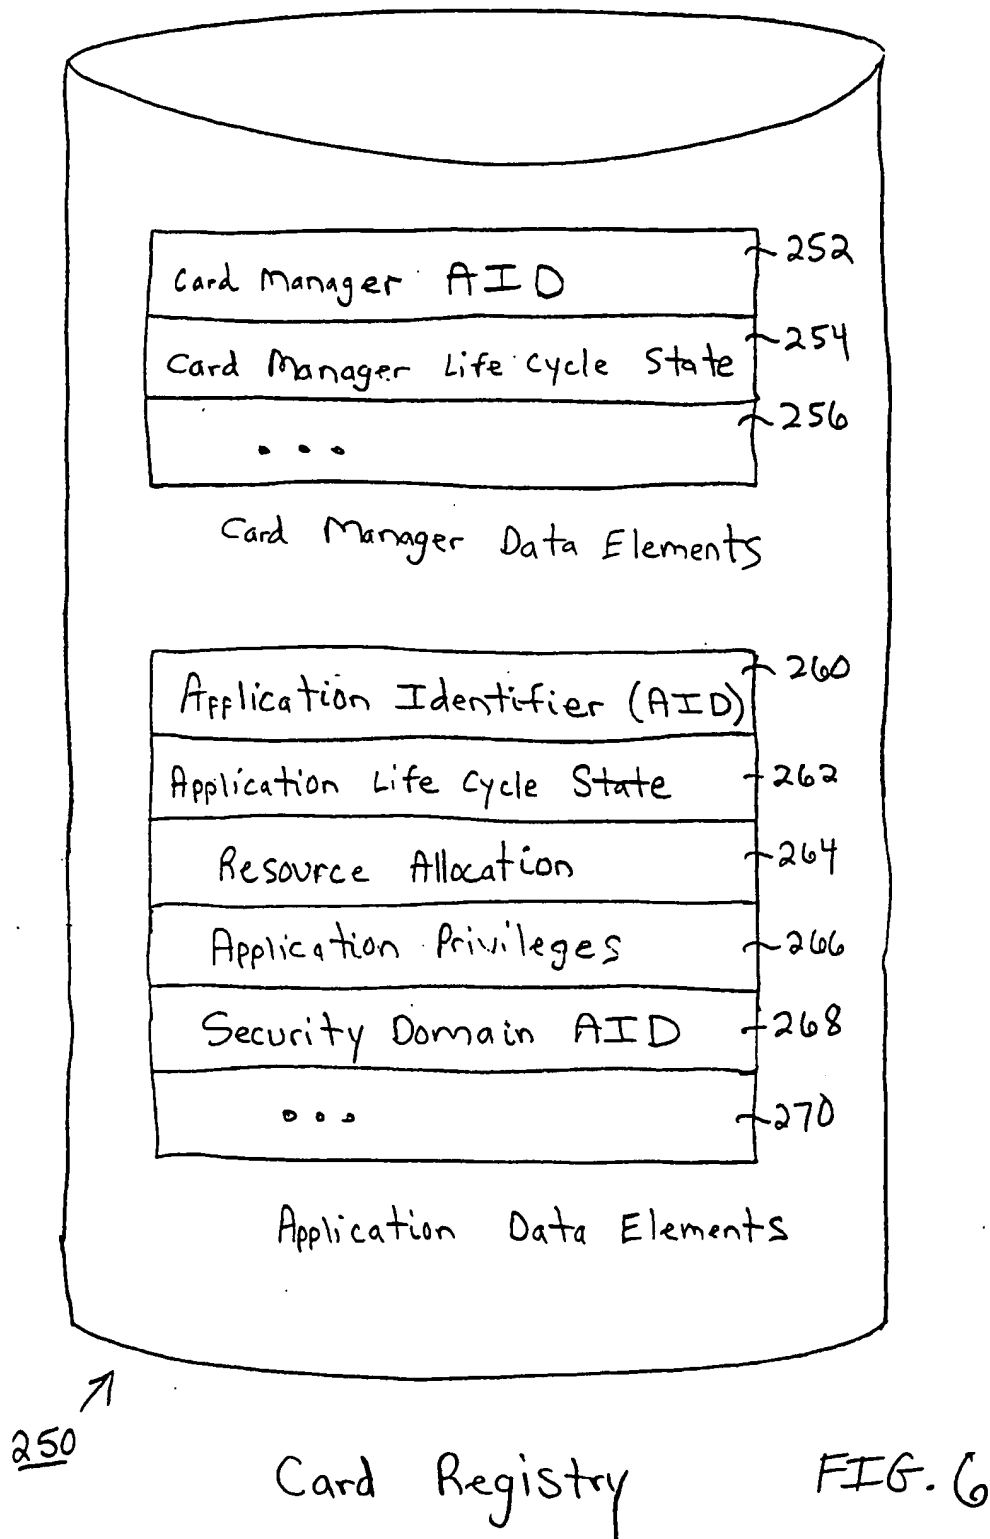 Card Manager AID 252
Card Manager Life Cycle State 254
... 256
Card Manager Data Elements
Application Identifier (AID) 260
Application Life Cycle State 262
Resource Allocation 264
Application Privileges 266
Security Domain AID 268
... 270
Application Data Elements
250
Card Registry FIG. 6